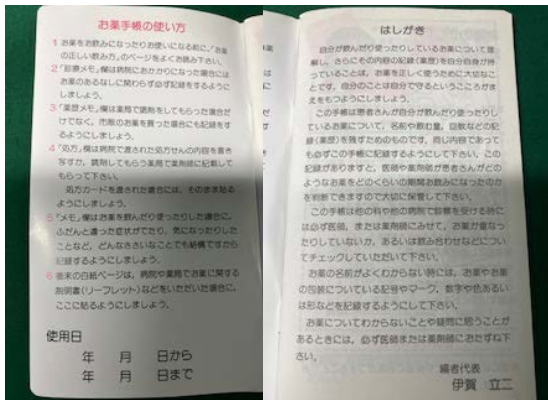 お薬手帳の使い方
1 お薬をお飲みになったりお使いになる前に、「お薬
の正しい飲み方」のページをよくお読み下さい。
2 「診療メモ」欄は病院におかかりになった場合には
お薬のあるなしに関わらず必ず記録をするように
しましょう。
3 「薬歴メモ」欄は薬局で調剤をしてもらった場合だ
けでなく、市販のお薬を買った場合にも記録をす
るようにしましょう。
4 「処方」欄は病院で渡された処方せんの内容を書き
写すか、調剤してもらう薬局で薬剤師に記載して
もらって下さい。
処方カードを渡された場合には、そのまま貼る
ようにしましょう。
5 「メモ」欄はお薬を飲んだり使ったりした場合に、
ふだんと違った症状がでたり、気になったりした
ことなど、どんなささいなことでも結構ですから
記録するようにしましょう。
6 巻末の白紙ページは、病院や薬局でお薬に関する
説明書(リーフレット)などをいただいた場合に、
ここに貼るようにしましょう。
使用日
年 月 日から
年 月 日まで
はしがき
自分が飲んだり使ったりしているお薬について理
解し、さらにその内容の記録(薬歴)を自分自身が持
っていることは、お薬を正しく使うために大切なこ
とです。自分のことは自分で守るというこころがま
えをもつようにしましょう。
この手帳は患者さんが自分が飲んだり使ったりし
ているお薬について、名前や飲む量、回数などの記
録(薬歴)を残すためのものです。同じ内容であって
も必ずこの手帳に記録するようにして下さい。この
記録がありますと、医師や薬剤師が患者さんがどの
ようなお薬をどのくらいの期間お飲みになったのか
を判断できますので大切に保管して下さい。
この手帳は他の科や他の病院で診察を受ける時に
は必ず医師、または薬剤師にみせて、お薬が重なっ
たりしていないか、あるいは飲み合わせなどについ
てチェックしていただいて下さい。
お薬の名前がよくわからない時には、お薬やお薬
の包装についている記号やマーク、数字や色あるい
は形などを記録するようにして下さい。
お薬についてわからないことや疑問に思うことが
あるときには、必ず医師または薬剤師におたずね下
さい。
編者代表
伊賀 立二